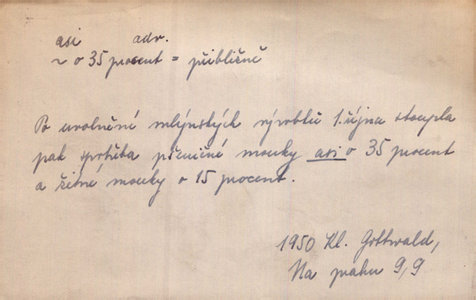 asi adv.
~ o 35 procent = přibližně
Po uvolnění mlýnských výrobků 1. října stoupla
pak spotřeba pšeničné mouky asi o 35 procent
a žitné mouky o 15 procent.
1950 Kl. Gottwald,
Na prahu 9,9